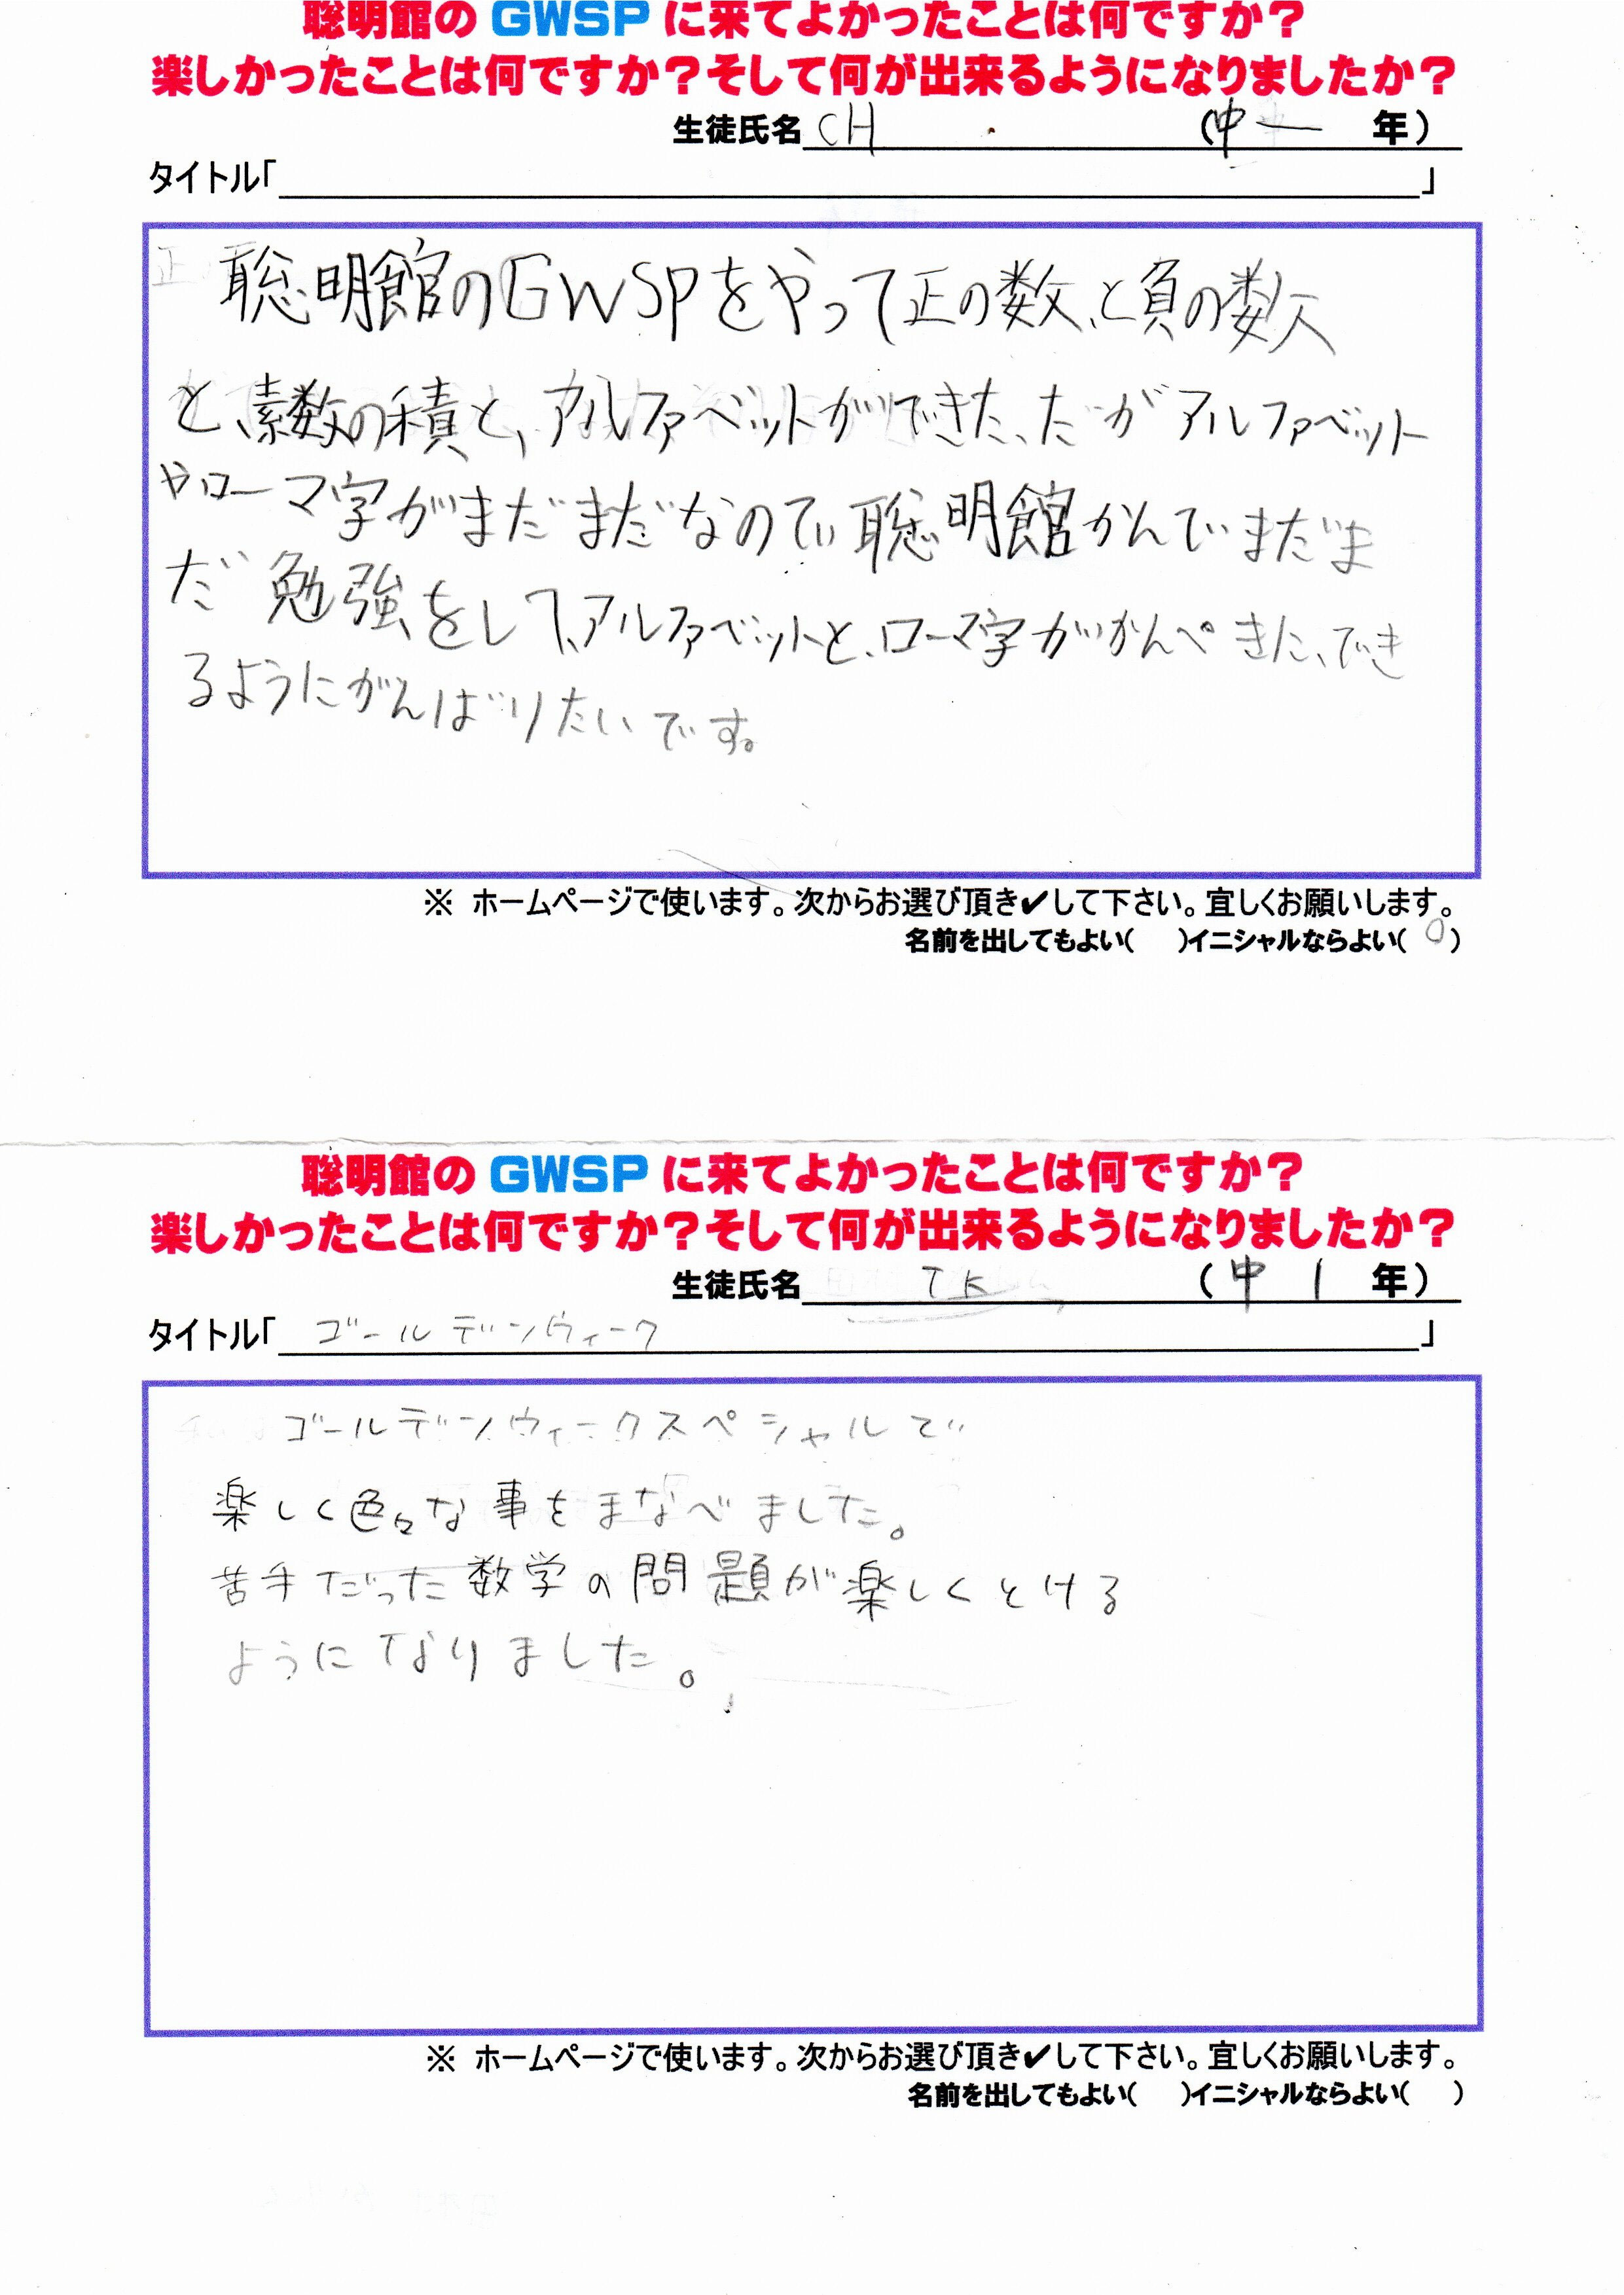 聡明館の GWSP に来てよかったことは何ですか？
楽しかったことは何ですか？そして何が出来るようになりましたか？
生徒氏名 CH (中一 年)
タイトル「 」
聡明館のGWSPをやって正の数、と負の数
と、素数の積と、アルファベットができた、だがアルファベット
やローマ字がまだまだなので聡明館かんでまだま
だ勉強をして、アルファベットと、ローマ字がかんぺきた、でき
るようにがんばりたいです。
※ ホームページで使います。次からお選び頂き✔して下さい。宜しくお願いします。
名前を出してもよい( )イニシャルならよい( 0 )
聡明館の GWSP に来てよかったことは何ですか？
楽しかったことは何ですか？そして何が出来るようになりましたか？
生徒氏名 TK (中 1 年)
タイトル「 ゴールデンウィーク 」
ゴールデンウィークスペシャルで
楽しく色々な事をまなべました。
苦手だった数学の問題が楽しくとける
ようになりました。
※ ホームページで使います。次からお選び頂き✔して下さい。宜しくお願いします。
名前を出してもよい( )イニシャルならよい( )